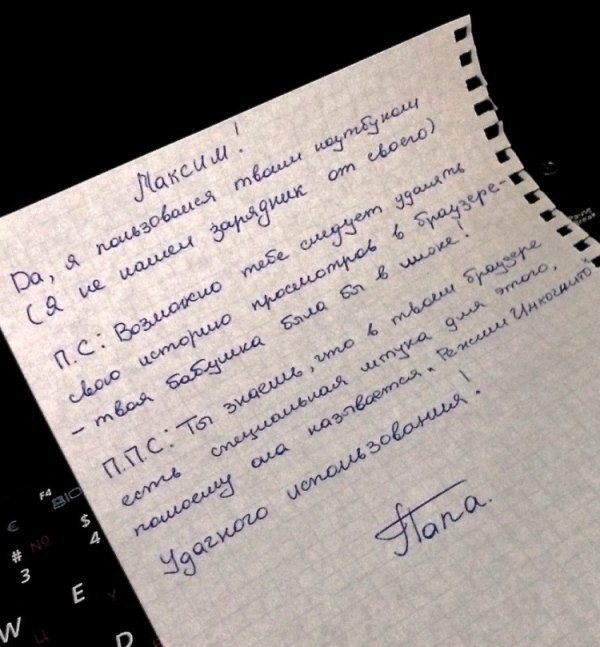 Максим!
Да, я пользовался твоим ноутбуком
(Я не нашел зарядник от своего)
П.С: Возможно тебе следует удалять
свою историю просмотров в браузере-
- твоя бабушка была бы в шоке!
П.П.С: Ты знаешь, что в твоём браузере
есть специальная штука для этого,
помоему она называется "Режим Инкогнито"
Удачного использования!
Папа.
F4
BIO
€
$
4
#
3
NO
W
E
D
Ц
У